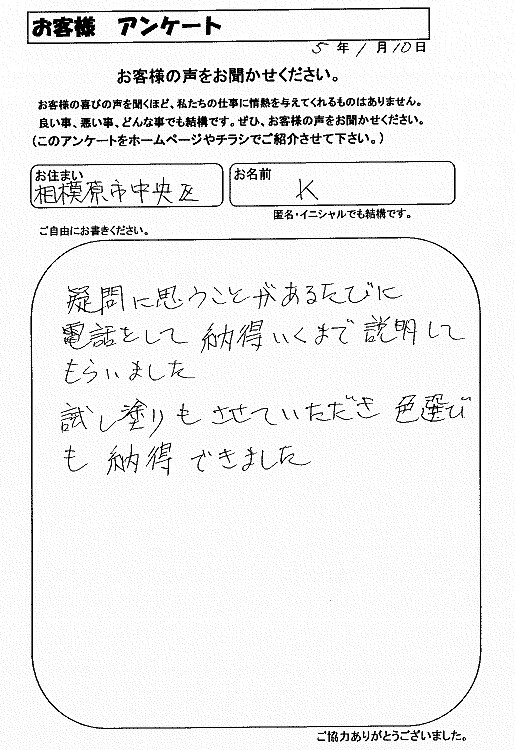 お客様 アンケート
5年1月10日
お客様の声をお聞かせください。
お客様の喜びの声を聞くほど、私たちの仕事に情熱を与えてくれるものはありません。
良い事、悪い事、どんな事でも結構です。ぜひ、お客様の声をお聞かせください。
(このアンケートをホームページやチラシでご紹介させて下さい。)
お住まい
相模原市中央区
お名前
K
匿名・イニシャルでも結構です。
ご自由にお書きください。
疑問に思うことがあるたびに
電話をして 納得いくまで 説明して
もらいました
試し塗りもさせていただき 色選び
も 納得 できました
ご協力ありがとうございました。